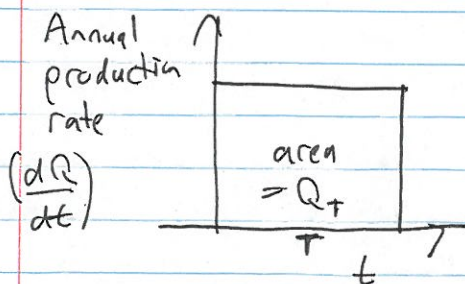 Annual
production
rate
(dQ/dt)
area
= Q_T
T
t